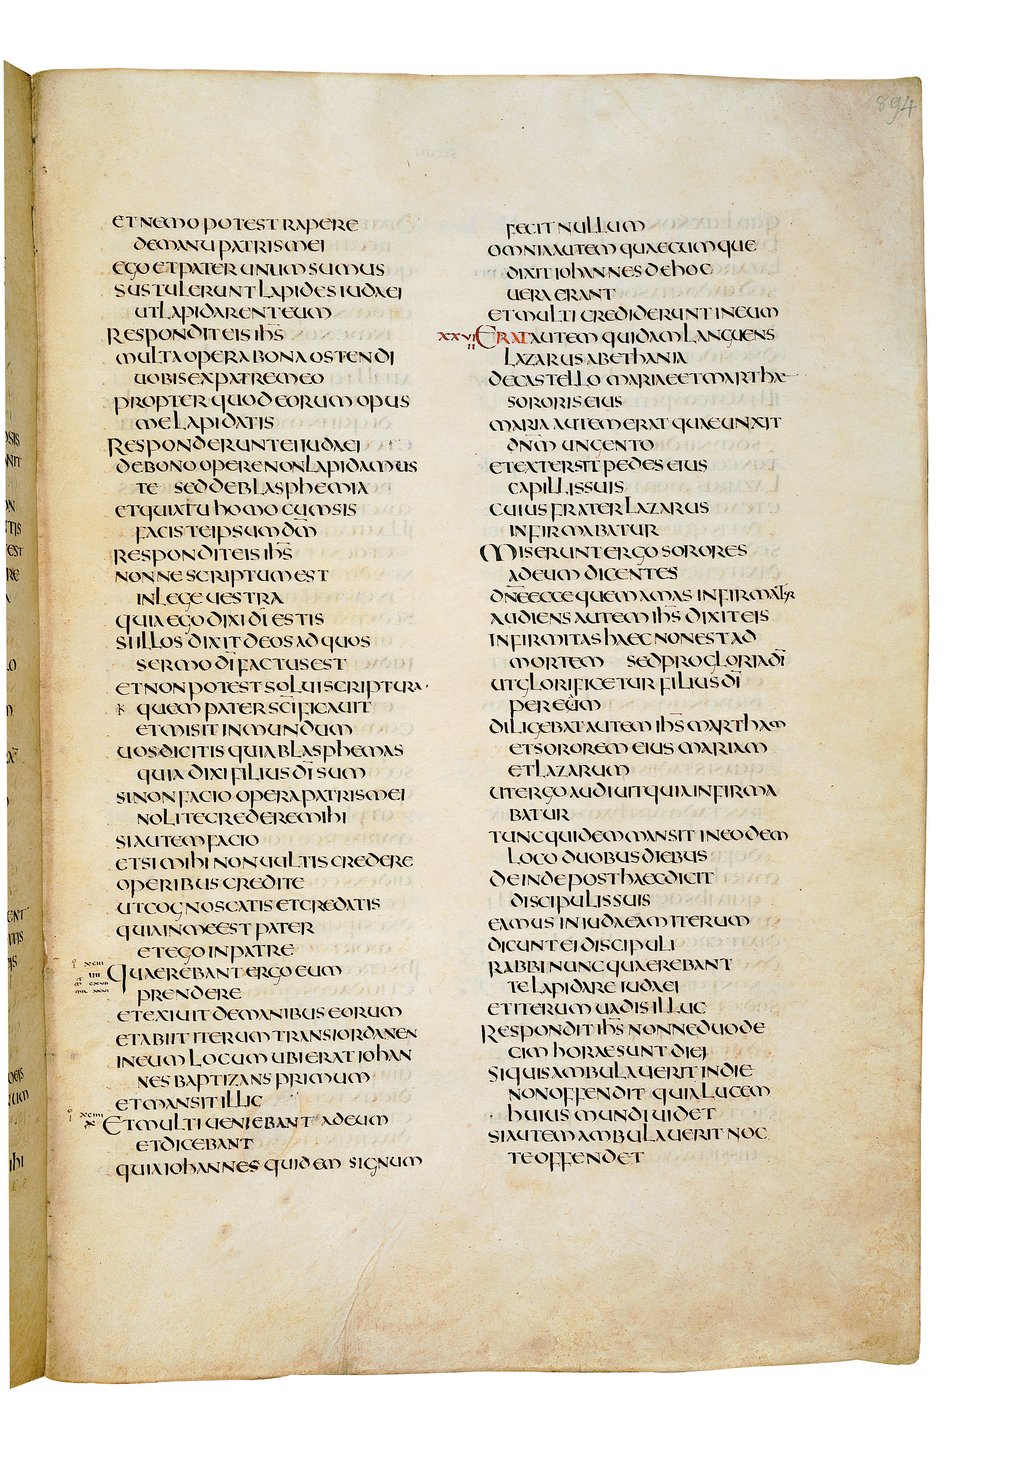 894
ET NEMO POTEST RAPERE
DEMANU PATRIS MEI
EGO ET PATER UNUM SUMUS
SUSTULERUNT LAPIDES IUDAEI
UT LAPIDARENT EUM
RESPONDIT EIS IHS
MULTA OPERA BONA OSTENDI
UOBIS EX PATRE MEO
PROPTER QUOD EORUM OPUS
ME LAPIDATIS
RESPONDERUNT EI IUDAEI
DE BONO OPERE NON LAPIDAMUS
TE SED DE BLASPHEMIA
ET QUIA TU HOMO CUM SIS
FACIS TE IPSUM DM
RESPONDIT EIS IHS
NONNE SCRIPTUM EST
IN LEGE UESTRA
QUIA EGO DIXI DI ESTIS
SI ILLOS DIXIT DEOS AD QUOS
SERMO DI FACTUS EST
ET NON POTEST SOLUI SCRIPTURA
QUEM PATER SCIFICAUIT
ET MISIT IN MUNDUM
UOS DICITIS QUIA BLASPHEMAS
QUIA DIXI FILIUS DI SUM
SI NON FACIO OPERA PATRIS MEI
NOLITE CREDERE MIHI
SI AUTEM FACIO
ET SI MIHI NON UULTIS CREDERE
OPERIBUS CREDITE
UT COGNOSCATIS ET CREDATIS
QUIA IN ME EST PATER
ET EGO IN PATRE
XCIII
IIII
QUAEREBANT ERGO EUM
PRENDERE
ET EXIUIT DE MANIBUS EORUM
ET ABIIT ITERUM TRANS IORDANEN
IN EUM LOCUM UBI ERAT IOHAN
NES BAPTIZANS PRIMUM
ET MANSIT ILLIC
XCIIII
X
ET MULTI UENIEBANT AD EUM
ET DICEBANT
QUIA IOHANNES QUIDEM SIGNUM
FECIT NULLUM
OMNIA AUTEM QUAECUMQUE
DIXIT IOHANNES DE HOC
UERA ERANT
ET MULTI CREDIDERUNT IN EUM
XXVI
II
ERAT AUTEM QUIDAM LANGUENS
LAZARUS A BETHANIA
DE CASTELLO MARIAE ET MARTHA
SORORIS EIUS
MARIA AUTEM ERAT QUAE UNXIT
DNM UNGENTO
ET EXTERSIT PEDES EIUS
CAPILLIS SUIS
CUIUS FRATER LAZARUS
INFIRMABATUR
MISERUNT ERGO SORORES
AD EUM DICENTES
DNE ECCE QUEM AMAS INFIRMATUR
AUDIENS AUTEM IHS DIXIT EIS
INFIRMITAS HAEC NON EST AD
MORTEM SED PRO GLORIA DI
UT GLORIFICETUR FILIUS DI
PER EUM
DILIGEBAT AUTEM IHS MARTHAM
ET SOROREM EIUS MARIAM
ET LAZARUM
UT ERGO AUDIUIT QUIA INFIRMA
BATUR
TUNC QUIDEM MANSIT IN EODEM
LOCO DUOBUS DIEBUS
DEINDE POST HAEC DICIT
DISCIPULIS SUIS
EAMUS IN IUDAEAM ITERUM
DICUNT EI DISCIPULI
RABBI NUNC QUAEREBANT
TE LAPIDARE IUDAEI
ET ITERUM UADIS ILLUC
RESPONDIT IHS NONNE DUODE
CIM HORAE SUNT DIEI
SI QUIS AMBULAUERIT IN DIE
NON OFFENDIT QUIA LUCEM
HUIUS MUNDI UIDET
SI AUTEM AMBULAUERIT NOC
TE OFFENDET